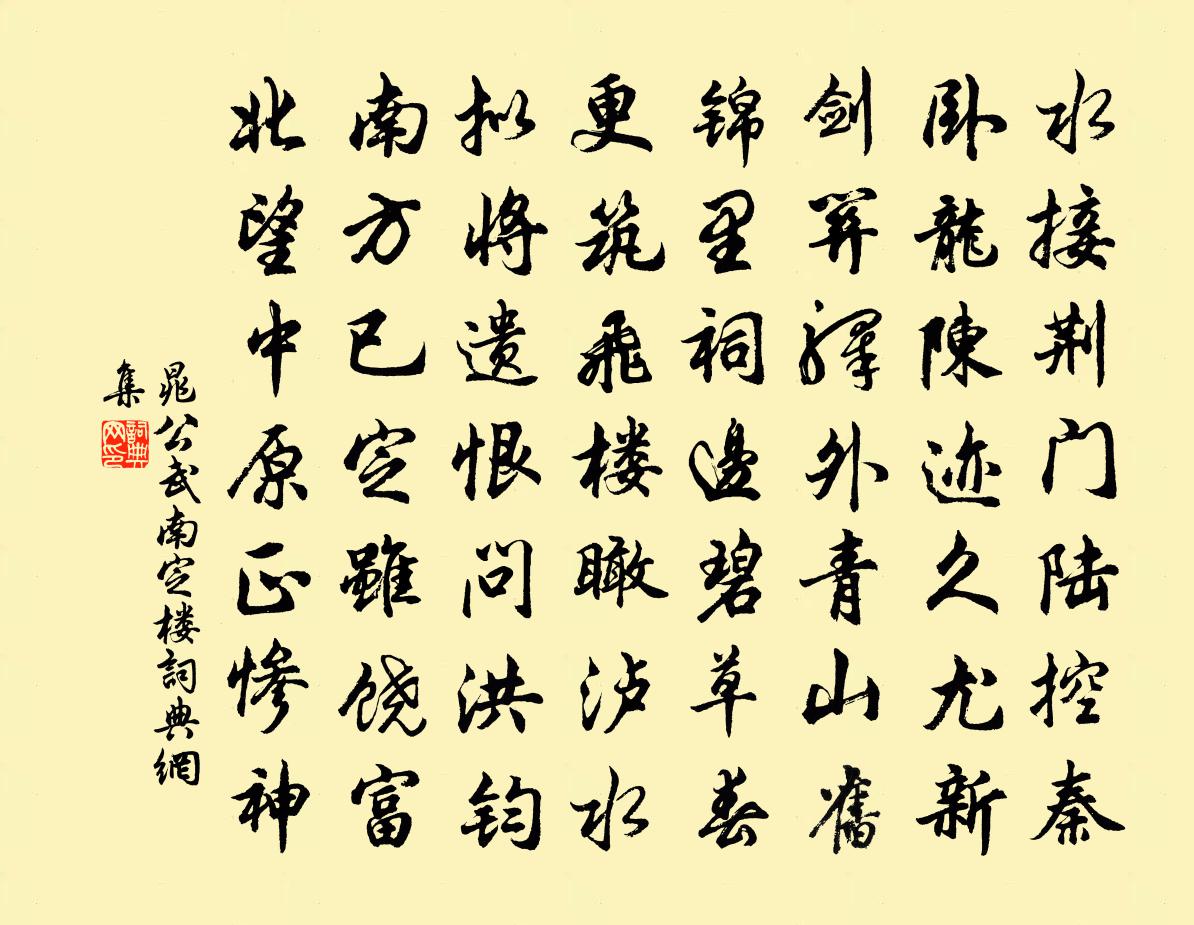 水接荆门陆控秦
卧龍陳迹久尤新
剑關驛外青山舊
锦里祠邊碧草春
更筑飛楼瞰泸水
拟将遗恨问洪钧
南方已定雖饶富
北望中原正惨神
晁公武南定楼詞典網
集
詞典
网印